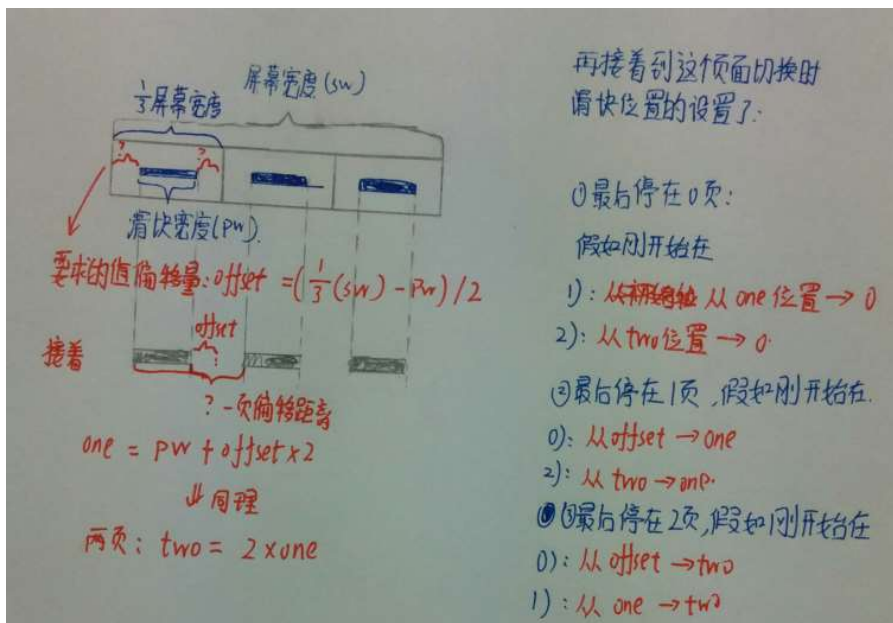 屏幕宽度(sw)
1/3屏幕宽度
? ?
滑块宽度(pw).
要求的值偏移量:offset =(1/3(sw) - pw)/2
offset
接着
? 一页偏移距离
one = pw + offset×2
⇓ 同理
两页: two = 2×one
再接着到这个页面切换时
滑块位置的设置了:
①最后停在0页:
假如刚开始在
1): 从one位置 → 0
2): 从two位置 → 0.
②最后停在1页,假如刚开始在.
0): 从offset → one
2): 从two → one.
③最后停在2页,假如刚开始在
0): 从offset → two
1): 从 one → two